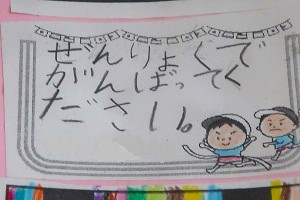 ぜんりょくで
がんばってく
ださい。